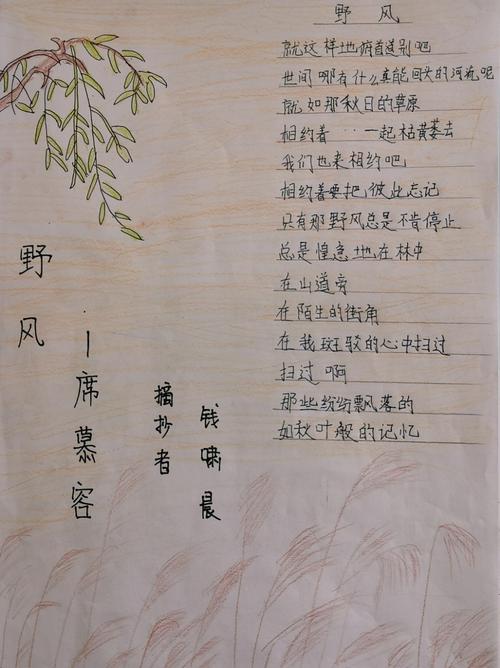 野风
就这样地俯首道别吧
世间哪有什么真能回头的河流呢
就如那秋日的草原
相约着···一起枯黄萎去
我们也来相约吧
相约着要把彼此忘记
只有那野风总是不肯停止
总是惶急地在林中
在山道旁
在陌生的街角
在我斑驳的心中扫过
扫过啊
那些纷纷飘落的
如秋叶般的记忆
野风
—席慕容
摘抄者
钱啸晨